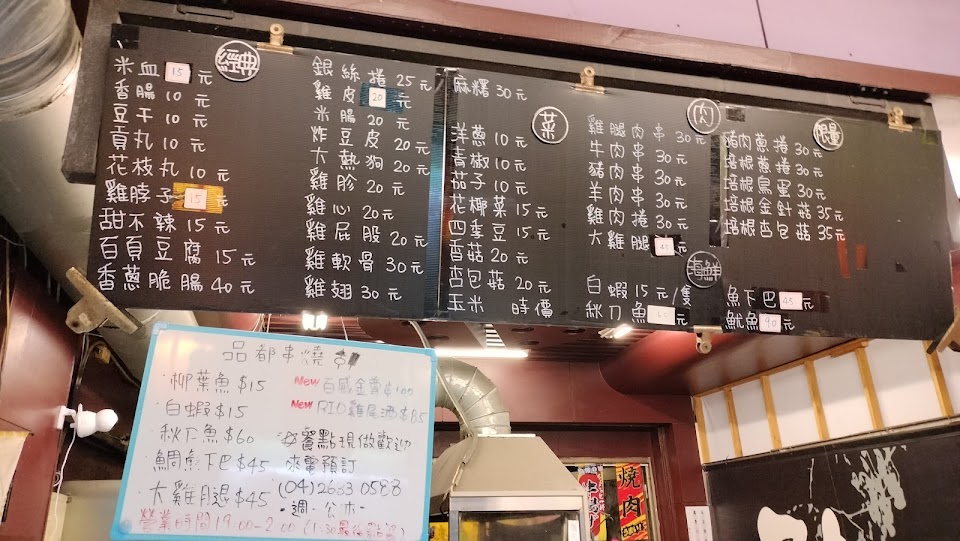 經典
米血 15 元
香腸 10 元
豆干 10 元
貢丸 10 元
花枝丸 10 元
雞脖子 15 元
甜不辣 15 元
百頁豆腐 15 元
香蔥脆腸 40 元
銀絲捲 25 元
雞皮 20 元
米腸 20 元
炸豆皮 20 元
大熱狗 20 元
雞胗 20 元
雞心 20 元
雞屁股 20 元
雞軟骨 30 元
雞翅 30 元
麻糬 30 元
菜
洋蔥 10 元
青椒 10 元
茄子 10 元
花椰菜 15 元
四季豆 15 元
香菇 20 元
杏包菇 20 元
玉米 時價
肉
雞腿肉串 30 元
牛肉串 30 元
豬肉串 30 元
羊肉串 30 元
雞肉捲 30 元
大雞腿 45 元
海鮮
白蝦 15 元/隻
秋刀魚 元
豬肉蔥捲 30 元
培根蔥捲 30 元
培根鳥蛋 30 元
培根金針菇 35 元
培根杏包菇 35 元
魚下巴 45 元
魷魚 90 元
品都串燒
·柳葉魚 $15
·白蝦 $15
·秋刀魚 $60
·鯛魚下巴 $45
·大雞腿 $45
New 百威金尊 $100
New RIO雞尾酒 $85
餐點現做歡迎
來電預訂
(04)2633 0588
·週 公休·
營業時間 19:00-2:00 (1:30最後點餐)
燒肉